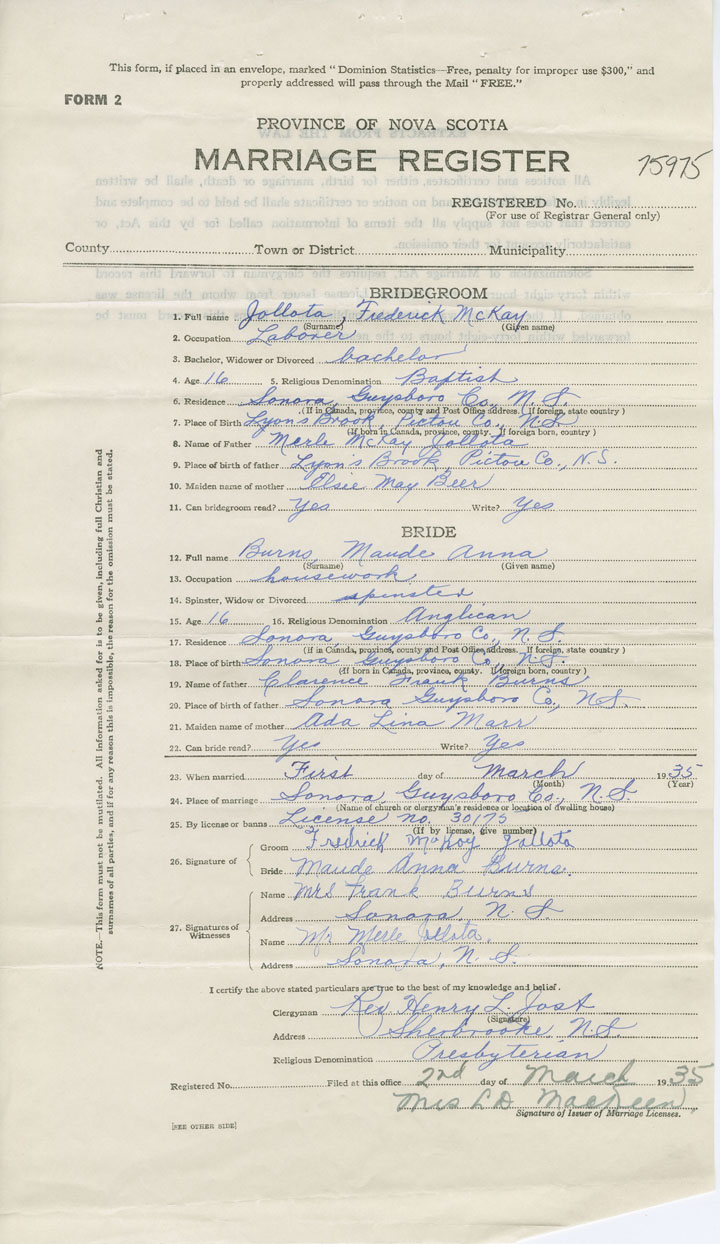 This form, if placed in an envelope, marked "Dominion Statistics—Free, penalty for improper use $300," and
properly addressed will pass through the Mail "FREE."
FORM 2
PROVINCE OF NOVA SCOTIA
MARRIAGE REGISTER
75975
REGISTERED No.
(For use of Registrar General only)
County Town or District Municipality
BRIDEGROOM
1. Full name Jollota, Frederick McKay
(Surname) (Given name)
2. Occupation Laborer
3. Bachelor, Widower or Divorced bachelor
4. Age 16 5. Religious Denomination Baptist
6. Residence Sonora, Guysboro Co., N. S.
(If in Canada, province, county and Post Office address. If foreign, state country)
7. Place of Birth Lyon's Brook, Pictou Co., N.S.
(If born in Canada, province, county. If foreign born, country)
8. Name of Father Merle McKay Jollota
9. Place of birth of father Lyon's Brook, Pictou Co., N.S.
10. Maiden name of mother Elsie May Beer
11. Can bridegroom read? Yes Write? Yes
BRIDE
12. Full name Burns, Maude Anna
(Surname) (Given name)
13. Occupation housework
14. Spinster, Widow or Divorced spinster
15. Age 16 16. Religious Denomination Anglican
17. Residence Sonora, Guysboro Co., N. S.
(If in Canada, province, county and Post Office address. If foreign, state country)
18. Place of birth Sonora Guysboro Co., N. S.
(If born in Canada, province, county. If foreign born, country)
19. Name of father Clarence Frank Burns
20. Place of birth of father Sonora Guysboro Co., N.S.
21. Maiden name of mother Ada Lina Marr
22. Can bride read? Yes Write? Yes
23. When married First day of March 1935
(Month) (Year)
24. Place of marriage Sonora, Guysboro Co., N.S
(Name of church or clergyman's residence or location of dwelling house)
25. By license or banns License no. 30175
(If by license, give number)
26. Signature of
Groom Fredrick McKay Jollota
Bride Maude Anna Burns.
27. Signatures of Witnesses
Name Mrs Frank Burns
Address Sonora, N. S.
Name Mr Merle Jollota.
Address Sonora, N. S.
I certify the above stated particulars are true to the best of my knowledge and belief.
Clergyman Rev Henry L. Jost
(Signature)
Address Sherbrooke, N.S.
Religious Denomination Presbyterian
Registered No. Filed at this office 2nd day of March 1935
Mrs L D MacKeen
Signature of Issuer of Marriage Licenses.
[SEE OTHER SIDE]
NOTE.—This form must not be mutilated. All information asked for is to be given, including full Christian and
surnames of all parties, and if for any reason this is impossible, the reason for the omission must be stated.